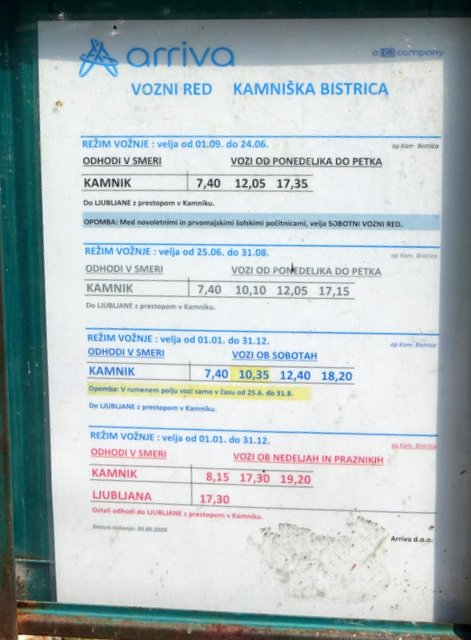 arriva
a DB company
VOZNI RED KAMNIŠKA BISTRICA
REŽIM VOŽNJE : velja od 01.09. do 24.06. ap Kam. Bistrica
ODHODI V SMERI VOZI OD PONEDELJKA DO PETKA
KAMNIK 7,40 12,05 17,35
Do LJUBLJANE z prestopom v Kamniku.
OPOMBA: Med novoletnimi in prvomajskimi šolskimi počitnicami, velja SOBOTNI VOZNI RED.
REŽIM VOŽNJE : velja od 25.06. do 31.08. ap Kam. Bistrica
ODHODI V SMERI VOZI OD PONEDELJKA DO PETKA
KAMNIK 7,40 10,10 12,05 17,15
Do LJUBLJANE z prestopom v Kamniku.
REŽIM VOŽNJE : velja od 01.01. do 31.12. ap Kam. Bistrica
ODHODI V SMERI VOZI OB SOBOTAH
KAMNIK 7,40 10,35 12,40 18,20
Opomba: V rumenem polju vozi samo v času od 25.6. do 31.8.
Do LJUBLJANE z prestopom v Kamniku.
REŽIM VOŽNJE : velja od 01.01. do 31.12. ap Kam. Bistrica
ODHODI V SMERI VOZI OB NEDELJAH IN PRAZNIKIH
KAMNIK 8,15 17,30 19,20
LJUBLJANA 17,30
Ostali odhodi do LJUBLJANE z prestopom v Kamniku.
Datum tiskanja: 30.09.2020
Arriva d.o.o.